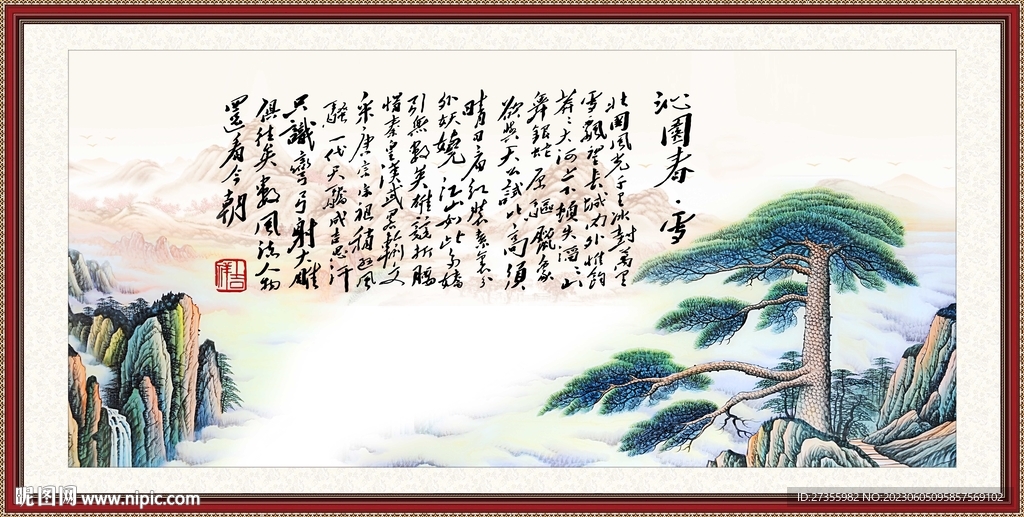 沁園春·雪
北國風光千里冰封萬里
雪飄望長城内外惟餘
莽々大河上下頓失滔々山
舞銀蛇原驅蠟象
欲與天公試比高須
晴日看紅裝素裹分
外妖嬈江山如此多嬌
引無數英雄競折腰
惜秦皇漢武略輸文
采唐宗宋祖稍遜風
騷一代天驕成吉思汗
只識彎弓射大雕
俱往矣數風流人物
還看今朝
吉祥
昵图网 www.nipic.com
ID:27355982 NO:20230605095857569102